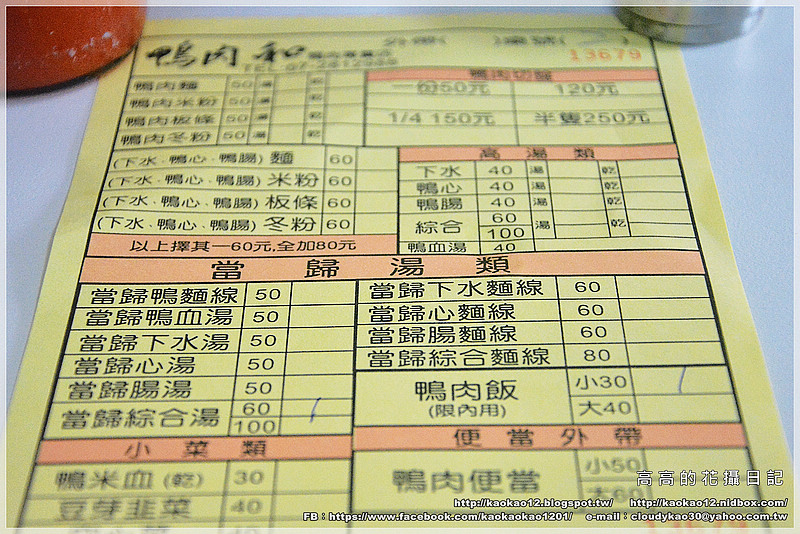 鴨肉和
外帶( )桌號( )
TEL 07-2812988
13679
鴨肉麵 50 湯 乾
鴨肉米粉 50 湯 乾
鴨肉板條 50 湯 乾
鴨肉冬粉 50 湯 乾
鴨肉切盤
一份50元 120元
1/4 150元 半隻250元
(下水.鴨心.鴨腸)麵 60
(下水.鴨心.鴨腸)米粉 60
(下水.鴨心.鴨腸)板條 60
(下水.鴨心.鴨腸)冬粉 60
以上擇其一60元,全加80元
高湯類
下水 40 湯 乾
鴨心 40 湯 乾
鴨腸 40 湯 乾
綜合 60 100 湯 乾
鴨血湯 40
當歸湯類
當歸鴨麵線 50
當歸鴨血湯 50
當歸下水湯 50
當歸心湯 50
當歸腸湯 50
當歸綜合湯 60 100
當歸下水麵線 60
當歸心麵線 60
當歸腸麵線 60
當歸綜合麵線 80
鴨肉飯 小30
(限內用) 大40
小菜類
鴨米血(乾) 30
豆芽韭菜 40
便當外帶
鴨肉便當 小50
大60
高高的花攝日記
http://kaokao12.blogspot.tw/ http://kaokao12.nidbox.com/
FB：https://www.facebook.com/kaokaokao1201/ e-mail：cloudykao30@yahoo.com.tw